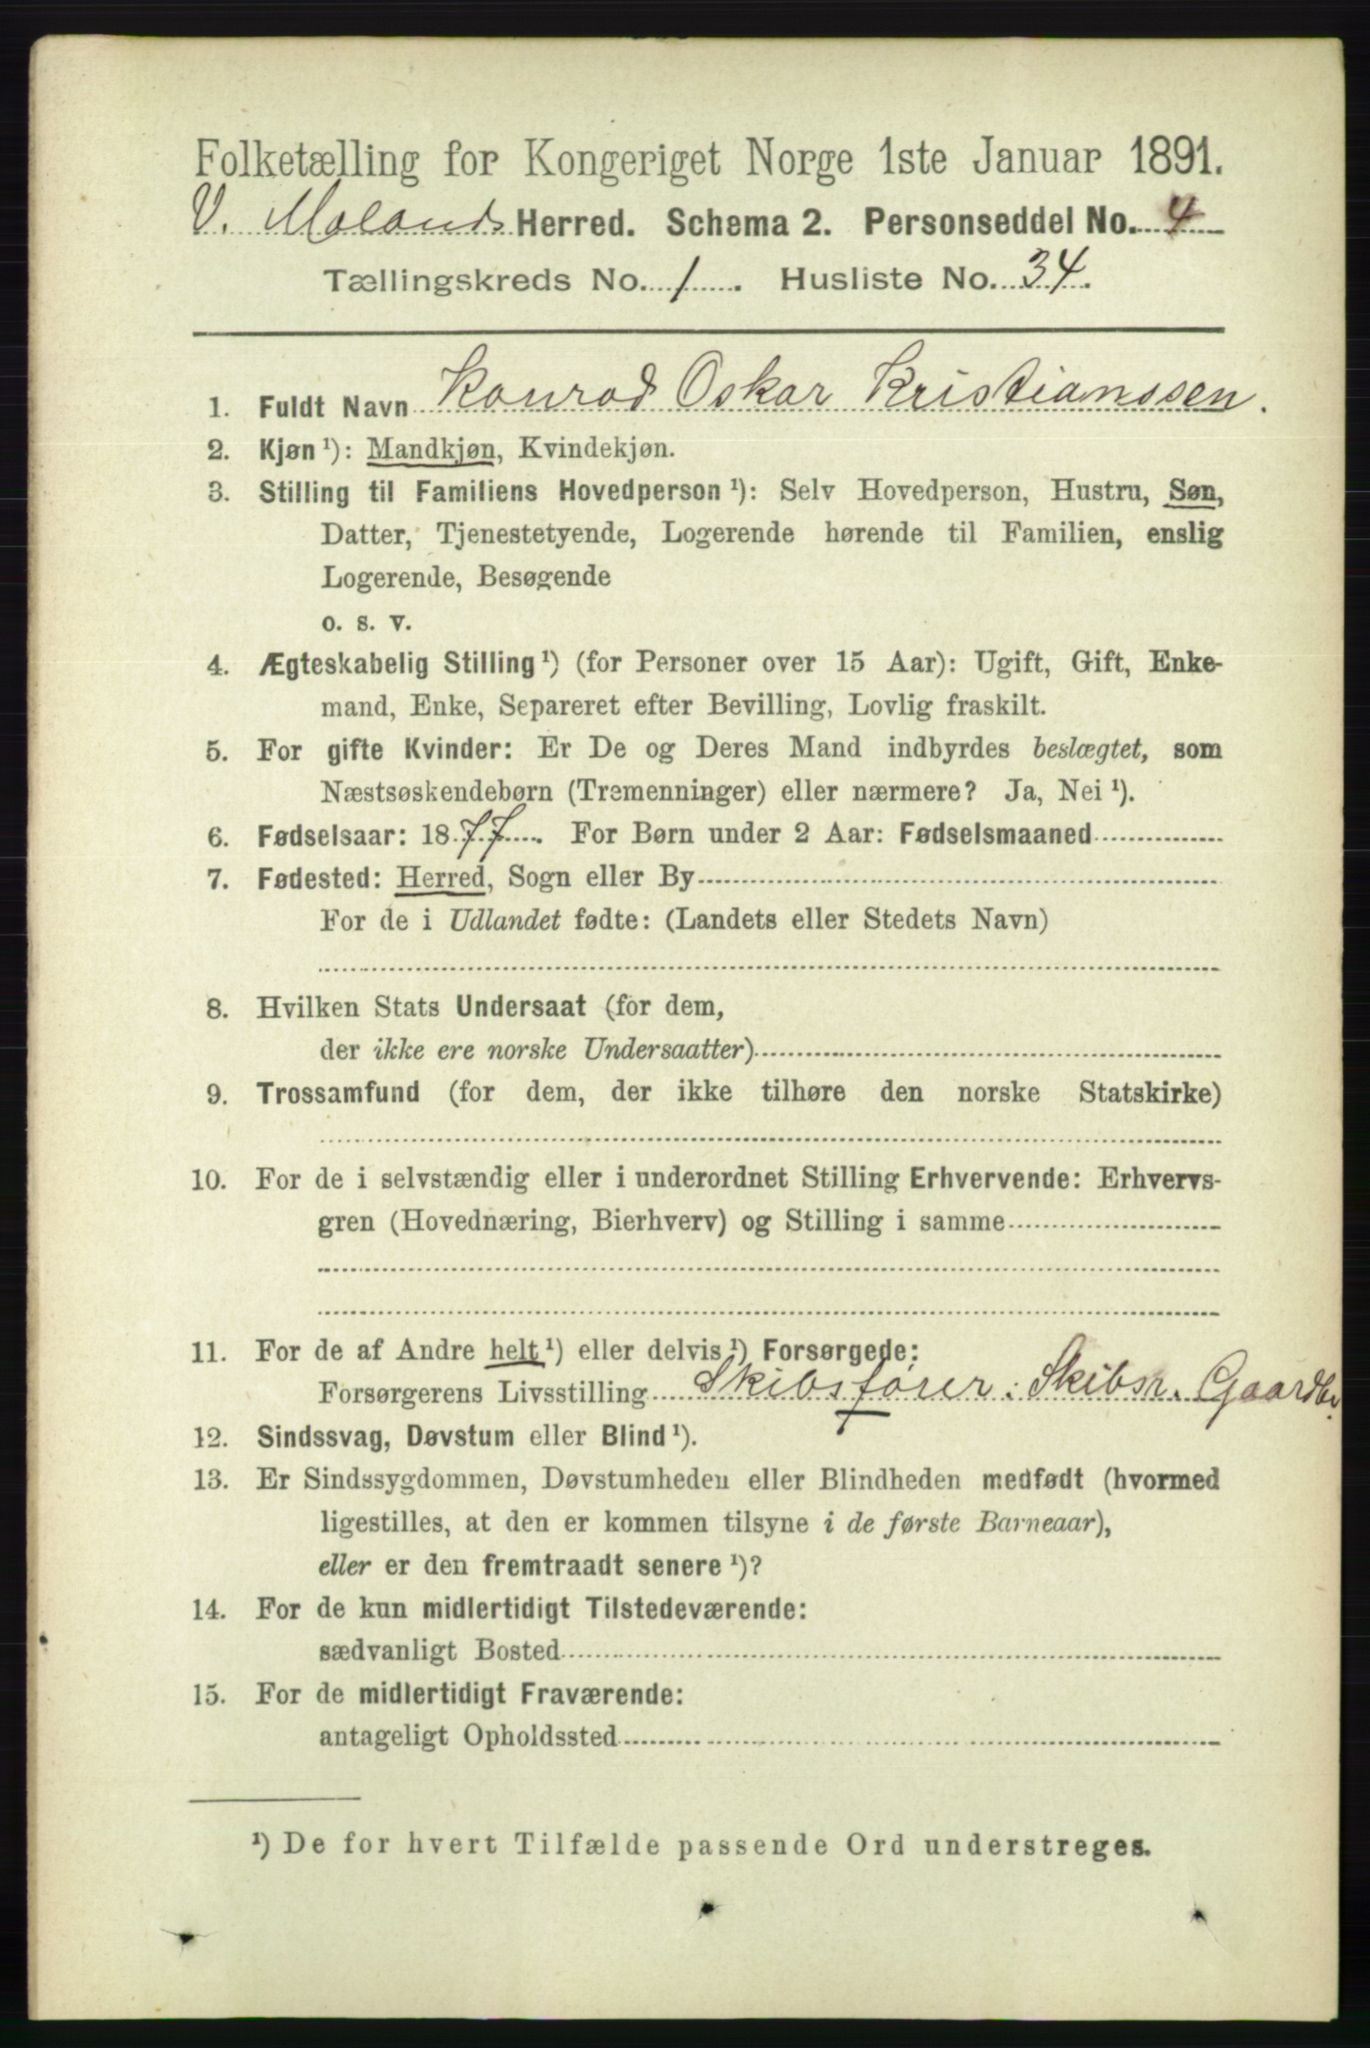 Folketælling for Kongeriget Norge 1ste Januar 1891.
V. Molands Herred. Schema 2. Personseddel No. 4
Tællingskreds No. 1. Husliste No. 34.
1. Fuldt Navn Konrad Oskar Kristianssen.
2. Kjøn¹): Mandkjøn, Kvindekjøn.
3. Stilling til Familiens Hovedperson¹): Selv Hovedperson, Hustru, Søn,
Datter, Tjenestetyende, Logerende hørende til Familien, enslig
Logerende, Besøgende
o. s. v.
4. Ægteskabelig Stilling¹) (for Personer over 15 Aar): Ugift, Gift, Enke-
mand, Enke, Separeret efter Bevilling, Lovlig fraskilt.
5. For gifte Kvinder: Er De og Deres Mand indbyrdes beslægtet, som
Næstsøskendebørn (Tremenninger) eller nærmere? Ja, Nei¹).
6. Fødselsaar: 1877. For Børn under 2 Aar: Fødselsmaaned
7. Fødested: Herred, Sogn eller By
For de i Udlandet fødte: (Landets eller Stedets Navn)
8. Hvilken Stats Undersaat (for dem,
der ikke ere norske Undersaatter)
9. Trossamfund (for dem, der ikke tilhøre den norske Statskirke)
10. For de i selvstændig eller i underordnet Stilling Erhvervende: Erhvervs-
gren (Hovednæring, Bierhverv) og Stilling i samme
11. For de af Andre helt¹) eller delvis¹) Forsørgede:
Forsørgerens Livsstilling Skibsfører: Skibsr. Gaardbr.
12. Sindssvag, Døvstum eller Blind¹).
13. Er Sindssygdommen, Døvstumheden eller Blindheden medfødt (hvormed
ligestilles, at den er kommen tilsyne i de første Barneaar),
eller er den fremtraadt senere¹)?
14. For de kun midlertidigt Tilstedeværende:
sædvanligt Bosted
15. For de midlertidigt Fraværende:
antageligt Opholdssted
¹) De for hvert Tilfælde passende Ord understreges.